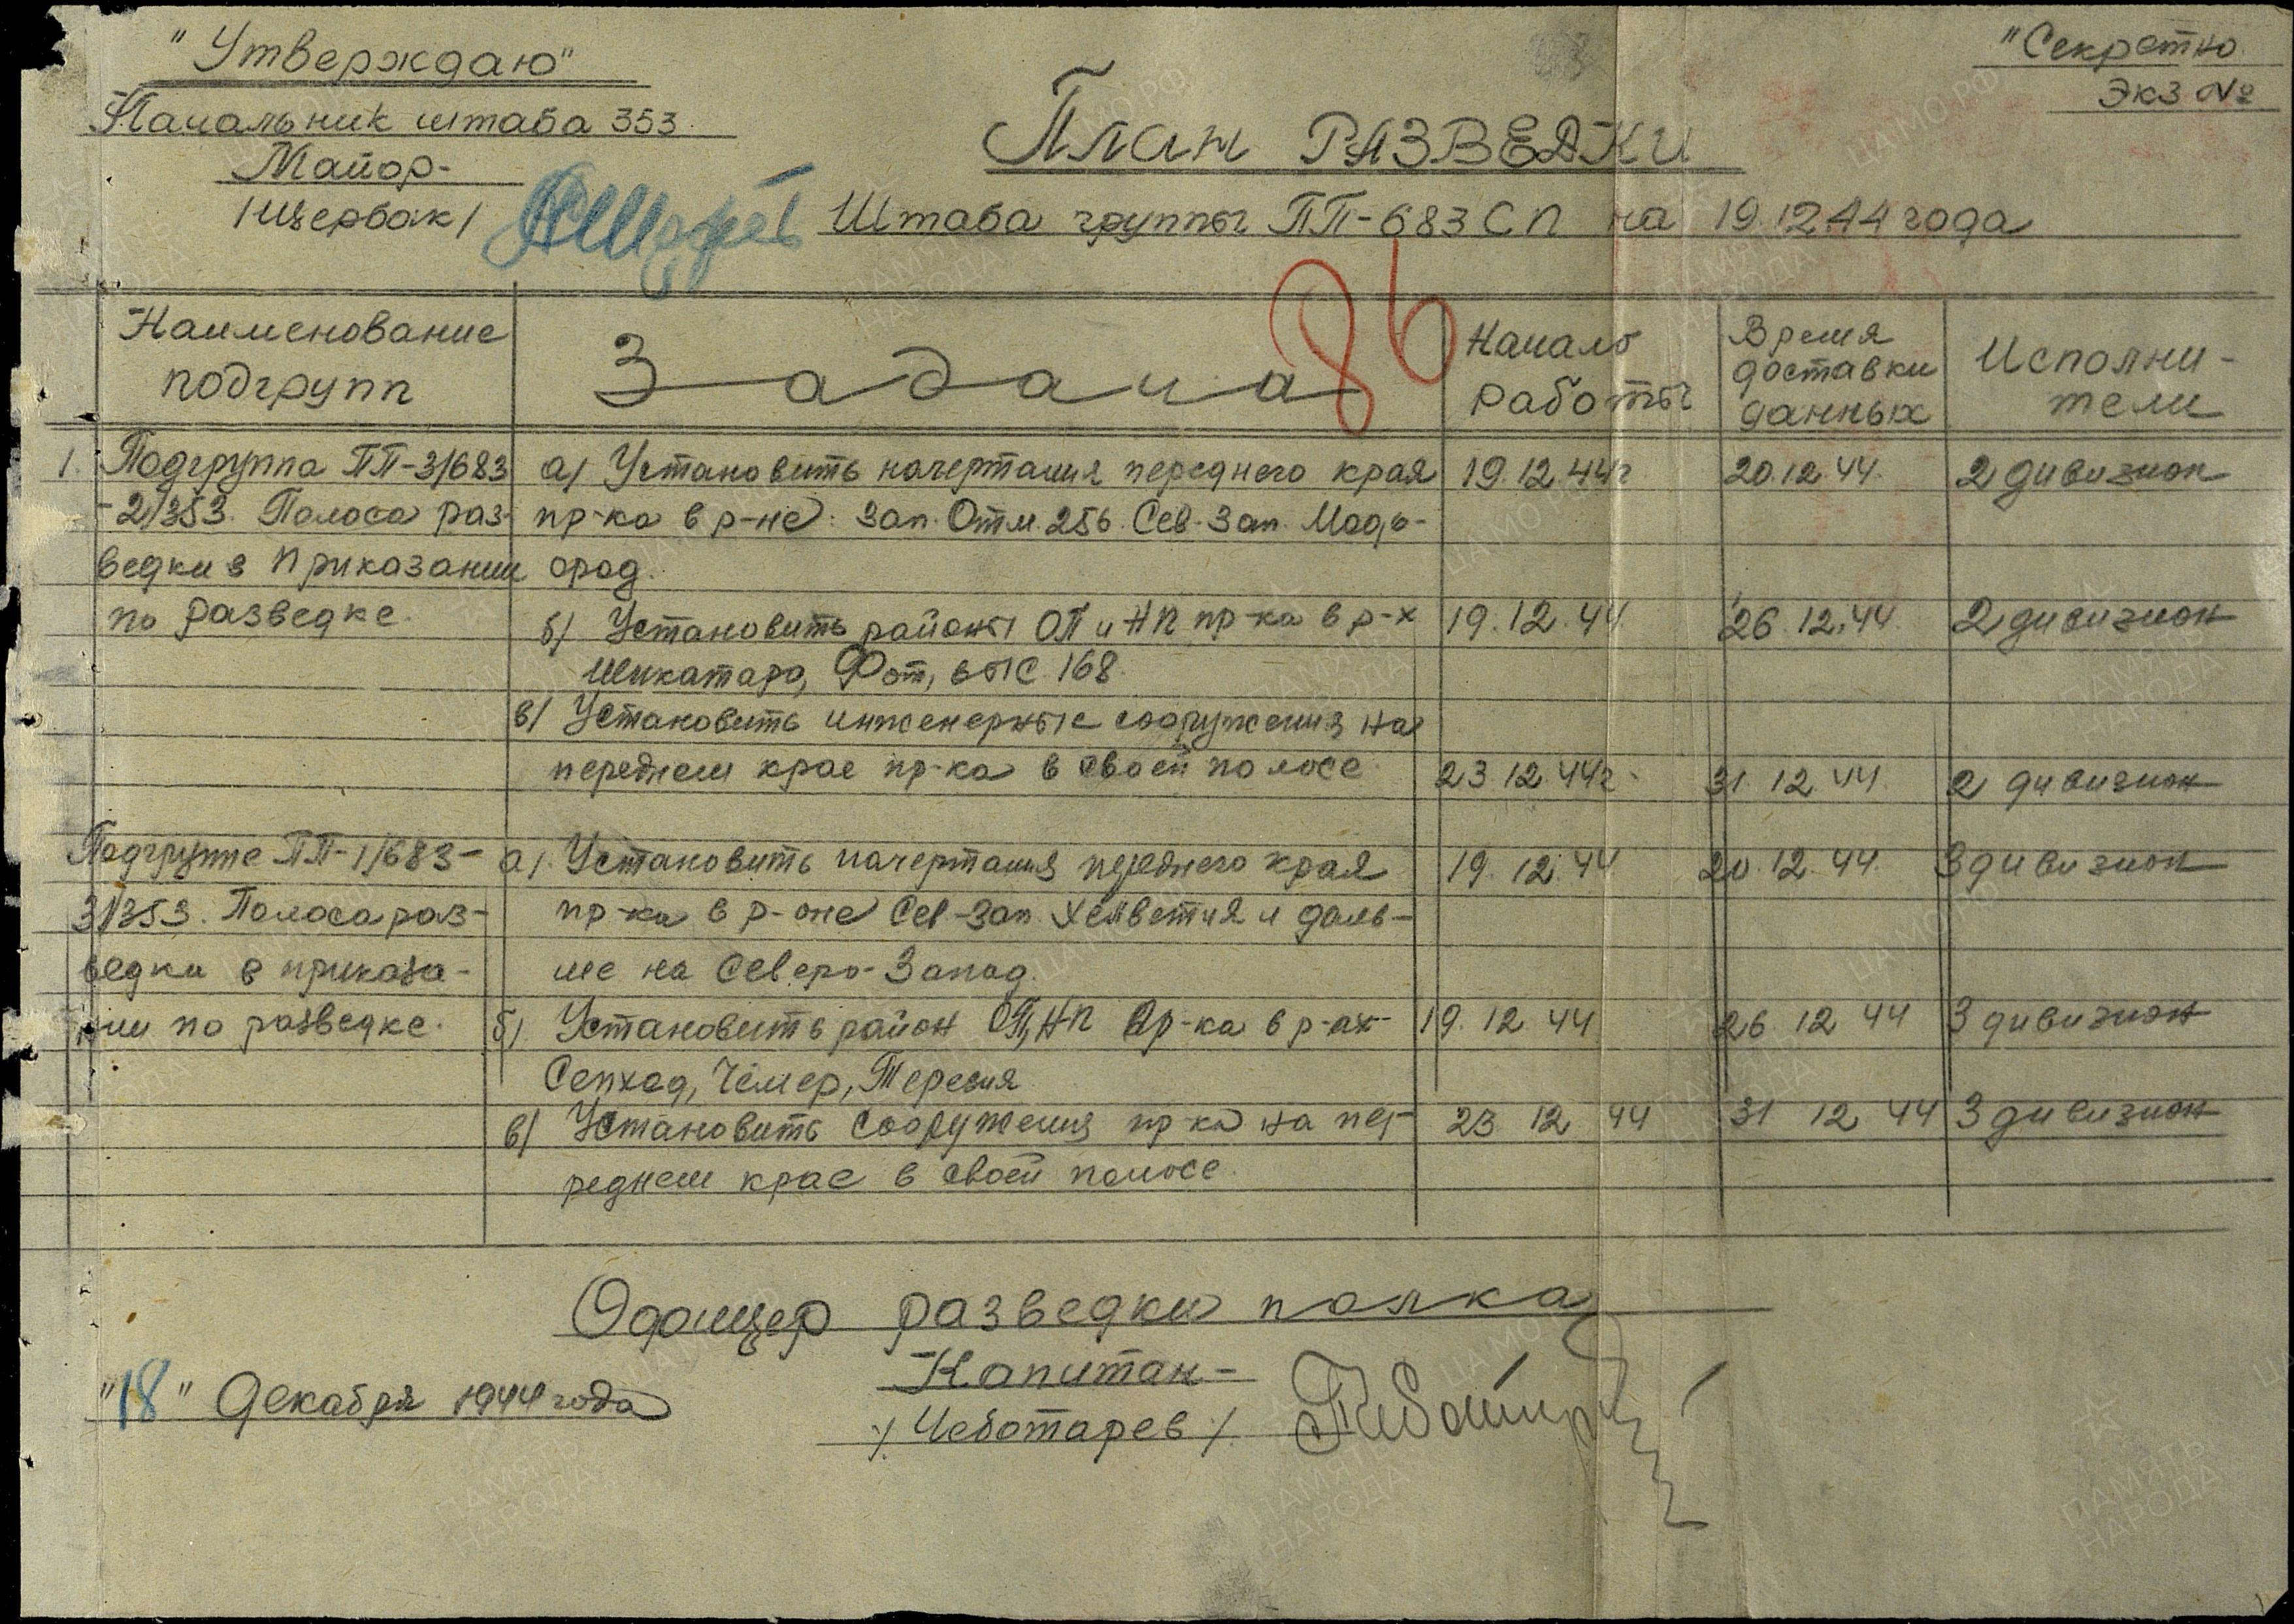 "Утверждаю"
"Секретно
Экз №
Начальник штаба 353
Майор-
/Щербак/
План РАЗВЕДКИ
Штаба группы ПП-683 СП на 19.12.44 года
86
Наименование подгрупп
Задача
Начало работы
Время доставки данных
Исполнители
1. Подгруппа ПП-3/683
-2/353. Полоса раз-
ведки в приказании
по разведке.
а/ Установить начертания переднего края
пр-ка в р-не: Зап. Отм. 256. Сев-Зап. Мадь-
ород.
19.12.44г
20.12.44.
2 дивизион
б/ Установить районы ОП и НП пр-ка в р-х
Шикатара, Фот, выс. 168.
19.12.44
26.12.44.
2 дивизион
в/ Установить инженерные сооружения на
переднем крае пр-ка в своей полосе.
23 12 44г.
31.12.44
2 дивизион
Подгруппе ПП-1/683-
3/353. Полоса раз-
ведки в приказа-
нии по разведке.
а/. Установить начертания переднего края
пр-ка в р-оне Сев-Зап. Хелветия и даль-
ше на Северо-Запад.
19.12.44
20.12.44.
3 дивизион
б/ Установить район ОП, НП пр-ка в р-ах-
Сепхед, Чемер, Терезия
19.12 44
26 12 44
3 дивизион
в/ Установить сооружения пр-ка на пе-
реднем крае в своей полосе.
23 12 44
31 12 44
3 дивизион
Офицер разведки полка
Капитан-
/Чеботарев/
"18" Декабря 1944 года
ЦАМО РФ
ПАМЯТЬ НАРОДА